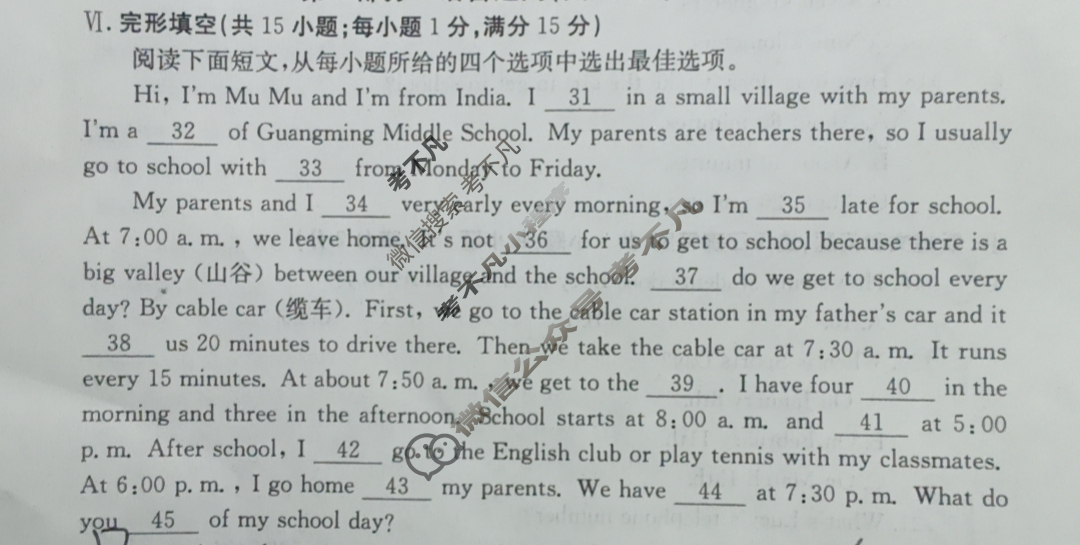 Ⅵ. 完形填空(共 15 小题;每小题 1 分,满分 15 分)
阅读下面短文,从每小题所给的四个选项中选出最佳选项。
Hi, I'm Mu Mu and I'm from India. I 31 in a small village with my parents.
I'm a 32 of Guangming Middle School. My parents are teachers there, so I usually
go to school with 33 from Monday to Friday.
My parents and I 34 very early every morning, so I'm 35 late for school.
At 7:00 a. m. , we leave home. It's not 36 for us to get to school because there is a
big valley (山谷) between our village and the school. 37 do we get to school every
day? By cable car (缆车). First, we go to the cable car station in my father's car and it
38 us 20 minutes to drive there. Then we take the cable car at 7:30 a. m. It runs
every 15 minutes. At about 7:50 a. m. , we get to the 39 . I have four 40 in the
morning and three in the afternoon. School starts at 8:00 a. m. and 41 at 5:00
p. m. After school, I 42 go to the English club or play tennis with my classmates.
At 6:00 p. m. , I go home 43 my parents. We have 44 at 7:30 p. m. What do
you 45 of my school day?
考不凡
微信搜索 考不凡
考不凡小程序
微信公众号 考不凡